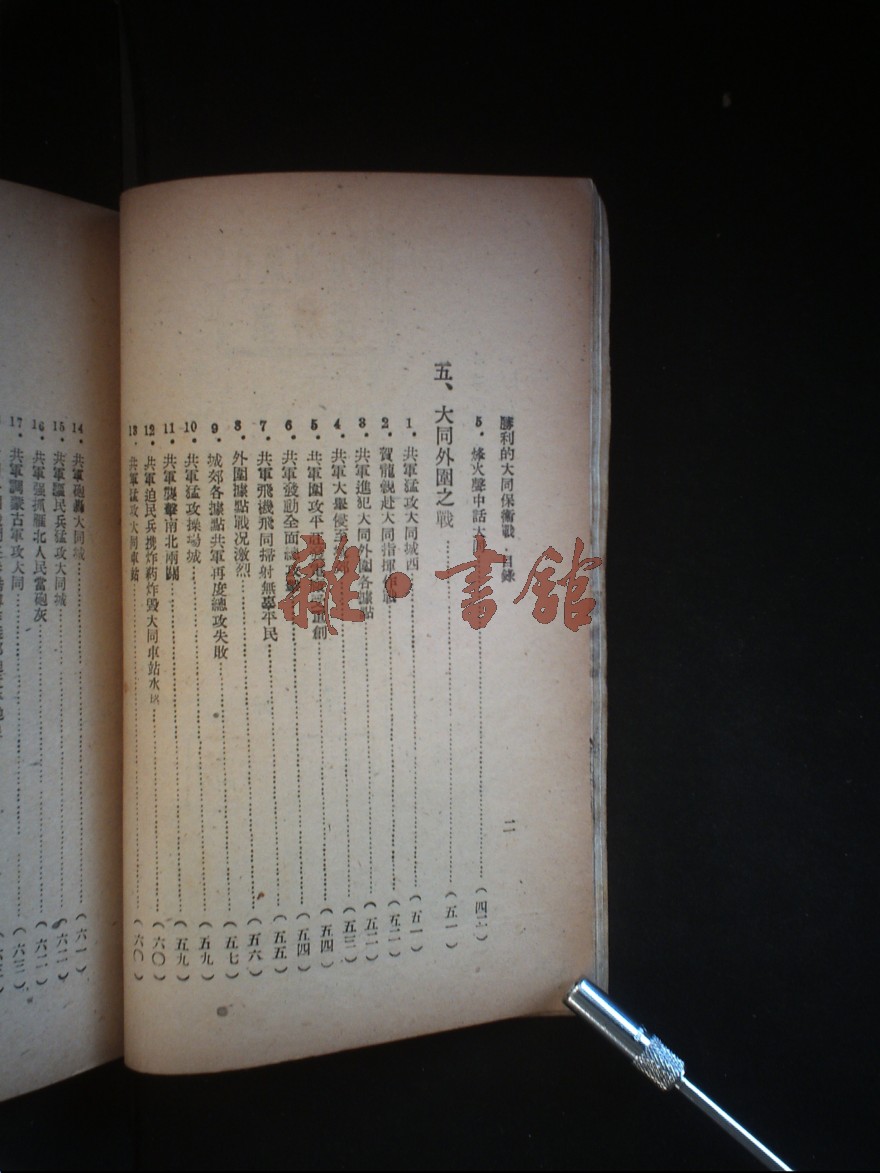 勝利的大同保衛戰·目錄
二
5·烽火聲中話大同(四三)
五、大同外圍之戰(五一)
1·共軍猛攻大同城西(五一)
2·賀龍親赴大同指揮(五二)
3·共軍進犯大同外圍各據點(五二)
4·共軍大舉侵至(五三)
5·共軍圍攻平(五四)
6·共軍發動全面總攻擊(五四)
7·共軍飛機飛同掃射無辜平民(五五)
8·外圍據點戰况激烈(五六)
9·城郊各據點共軍再度總攻失敗(五七)
10·共軍猛攻操場城(五九)
11·共軍襲擊南北兩關(五九)
12·共軍迫民兵携炸葯炸毁大同車站水(六〇)
13·共軍猛攻大同車站(六〇)
14·共軍砲轟大同城(六一)
15·共軍驅民兵猛攻大同城(六二)
16·共軍强抓雁北人民當砲灰(六二)
17·共軍調蒙古軍攻大同(六三)
雜·書館